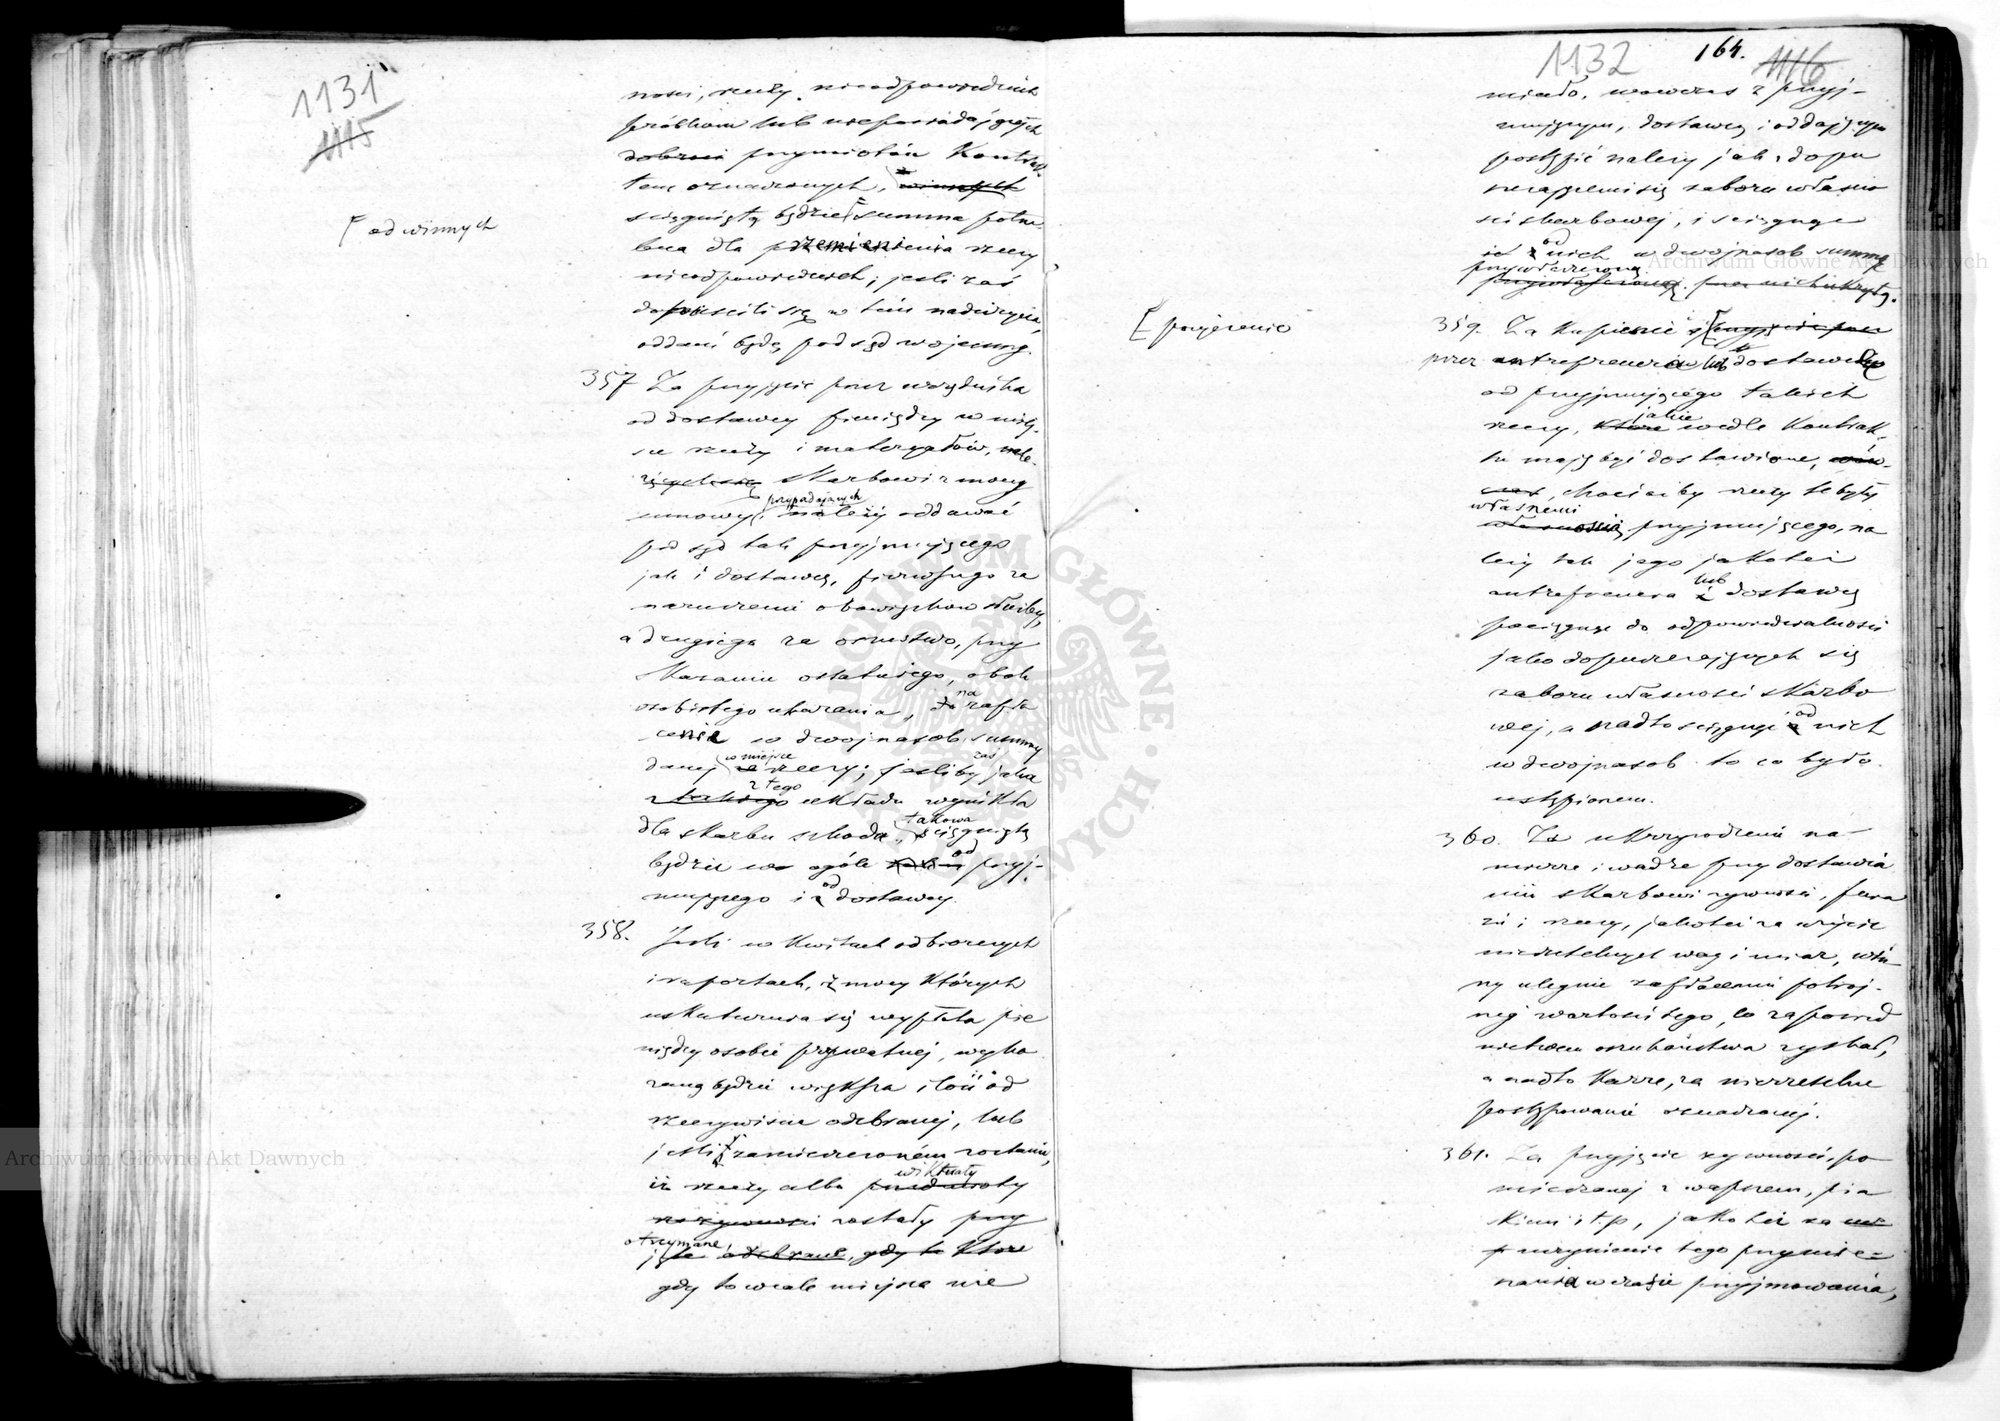 1131
1115
nosci, rzeczy nieodpowiednich
próbkom lub nieposiadających
dobroci przymiotów Kontrak-
tem oznaczonych, winnych
ściągniętą będzie summa potrze-
bna dla przemienienia rzeczy
nieodpowiednich; jeśli zaś
dopuścili się w tém nadużycia,
oddani będą pod sąd wojenny.
od winnych
357 Za przyjęcie przez urzędnika
od dostawcy pieniędzy w miej-
sce rzeczy i materyałów, nale-
żących się Skarbowi z mocy
umowy, przypadających należy oddawać
pod sąd tak przyjmującego
jak i dostawcę, pierwszego za
naruszenie obowiązków służby,
a drugiego za oszustwo, przy
skazaniu ostatniego, obok
osobistego ukarania, na zapła-
cenie w dwójnasób summy
danej w miejsce rzeczy; jeśliby zaś jaka
z tego układu wynikła
dla skarbu szkoda, takowa ściągniętą
będzie w ogóle od przyj-
mującego i od dostawcy.
358. Jeśli w kwitach odbiorczych
i raportach, z mocy których
uskutecznia się wypłata pie
niędzy osobie prywatnej, wyka
zaną będzie większa ilość od
rzeczywiście odebranej, lub
jeśli zamieszczoném zostanie,
iż rzeczy albo wiktuały
zostały przy
otrzymane
jęte odebrane, gdy to które
gdy to wcale miejsca nie
1132 164. 1116
miało, wówczas z przyj-
mującym, dostawcą i oddającym
postąpić należy jak z dopu
szczającemi się zaboru własno
ści skarbowej, i ściągnąć
od nich w dwójnasób summę
przywłaszczoną
przez nich ukrytą.
pożyczenie
359. Za kupienie
przez antreprenera lub dostawcę
od przyjmującego takich
rzeczy, jakie wedle Kontrak-
tu mają być dostawione,
chociażby rzeczy te były
własnemi
własnością przyjmującego, na
leży tak jego jakoteż
antreprenera lub dostawcę
pociągnąć do odpowiedzialności
jako dopuszczających się
zaboru własności skarbo
wej, a nadto ściągnąć od nich
w dwójnasób to co było
ustąpionem.
360. Za ukrzywdzenie na
mierze i wadze przy dostawia
niu skarbowi żywności, fura
żu i rzeczy, jakoteż za użycie
nierzetelnych wag i miar, win
ny ulegnie zapłaceniu potrój-
nej wartości tego, co za pośred
nictwem oszukaństwa zyskał,
a nadto karze, za nierzetelne
postępowanie oznaczonej.
361. Za przyjęcie żywności, po
mieszanej z wapnem, pia
skiem i t.p., jakoteż za
uczynienie tego przymie-
szania w czasie przyjmowania,